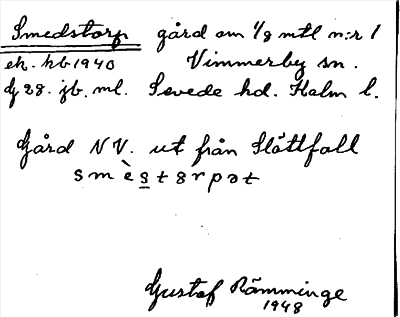 Smedstorp gård om 1/8 mtl n:r 1
ek. kb 1940 Vimmerby sn.
dj 28. jb. ml. Sevede hd. Kalm l.
Gård NV. ut från Slättfall
s m è s t ɘ r p ə t
Gustaf Rämminge
1948